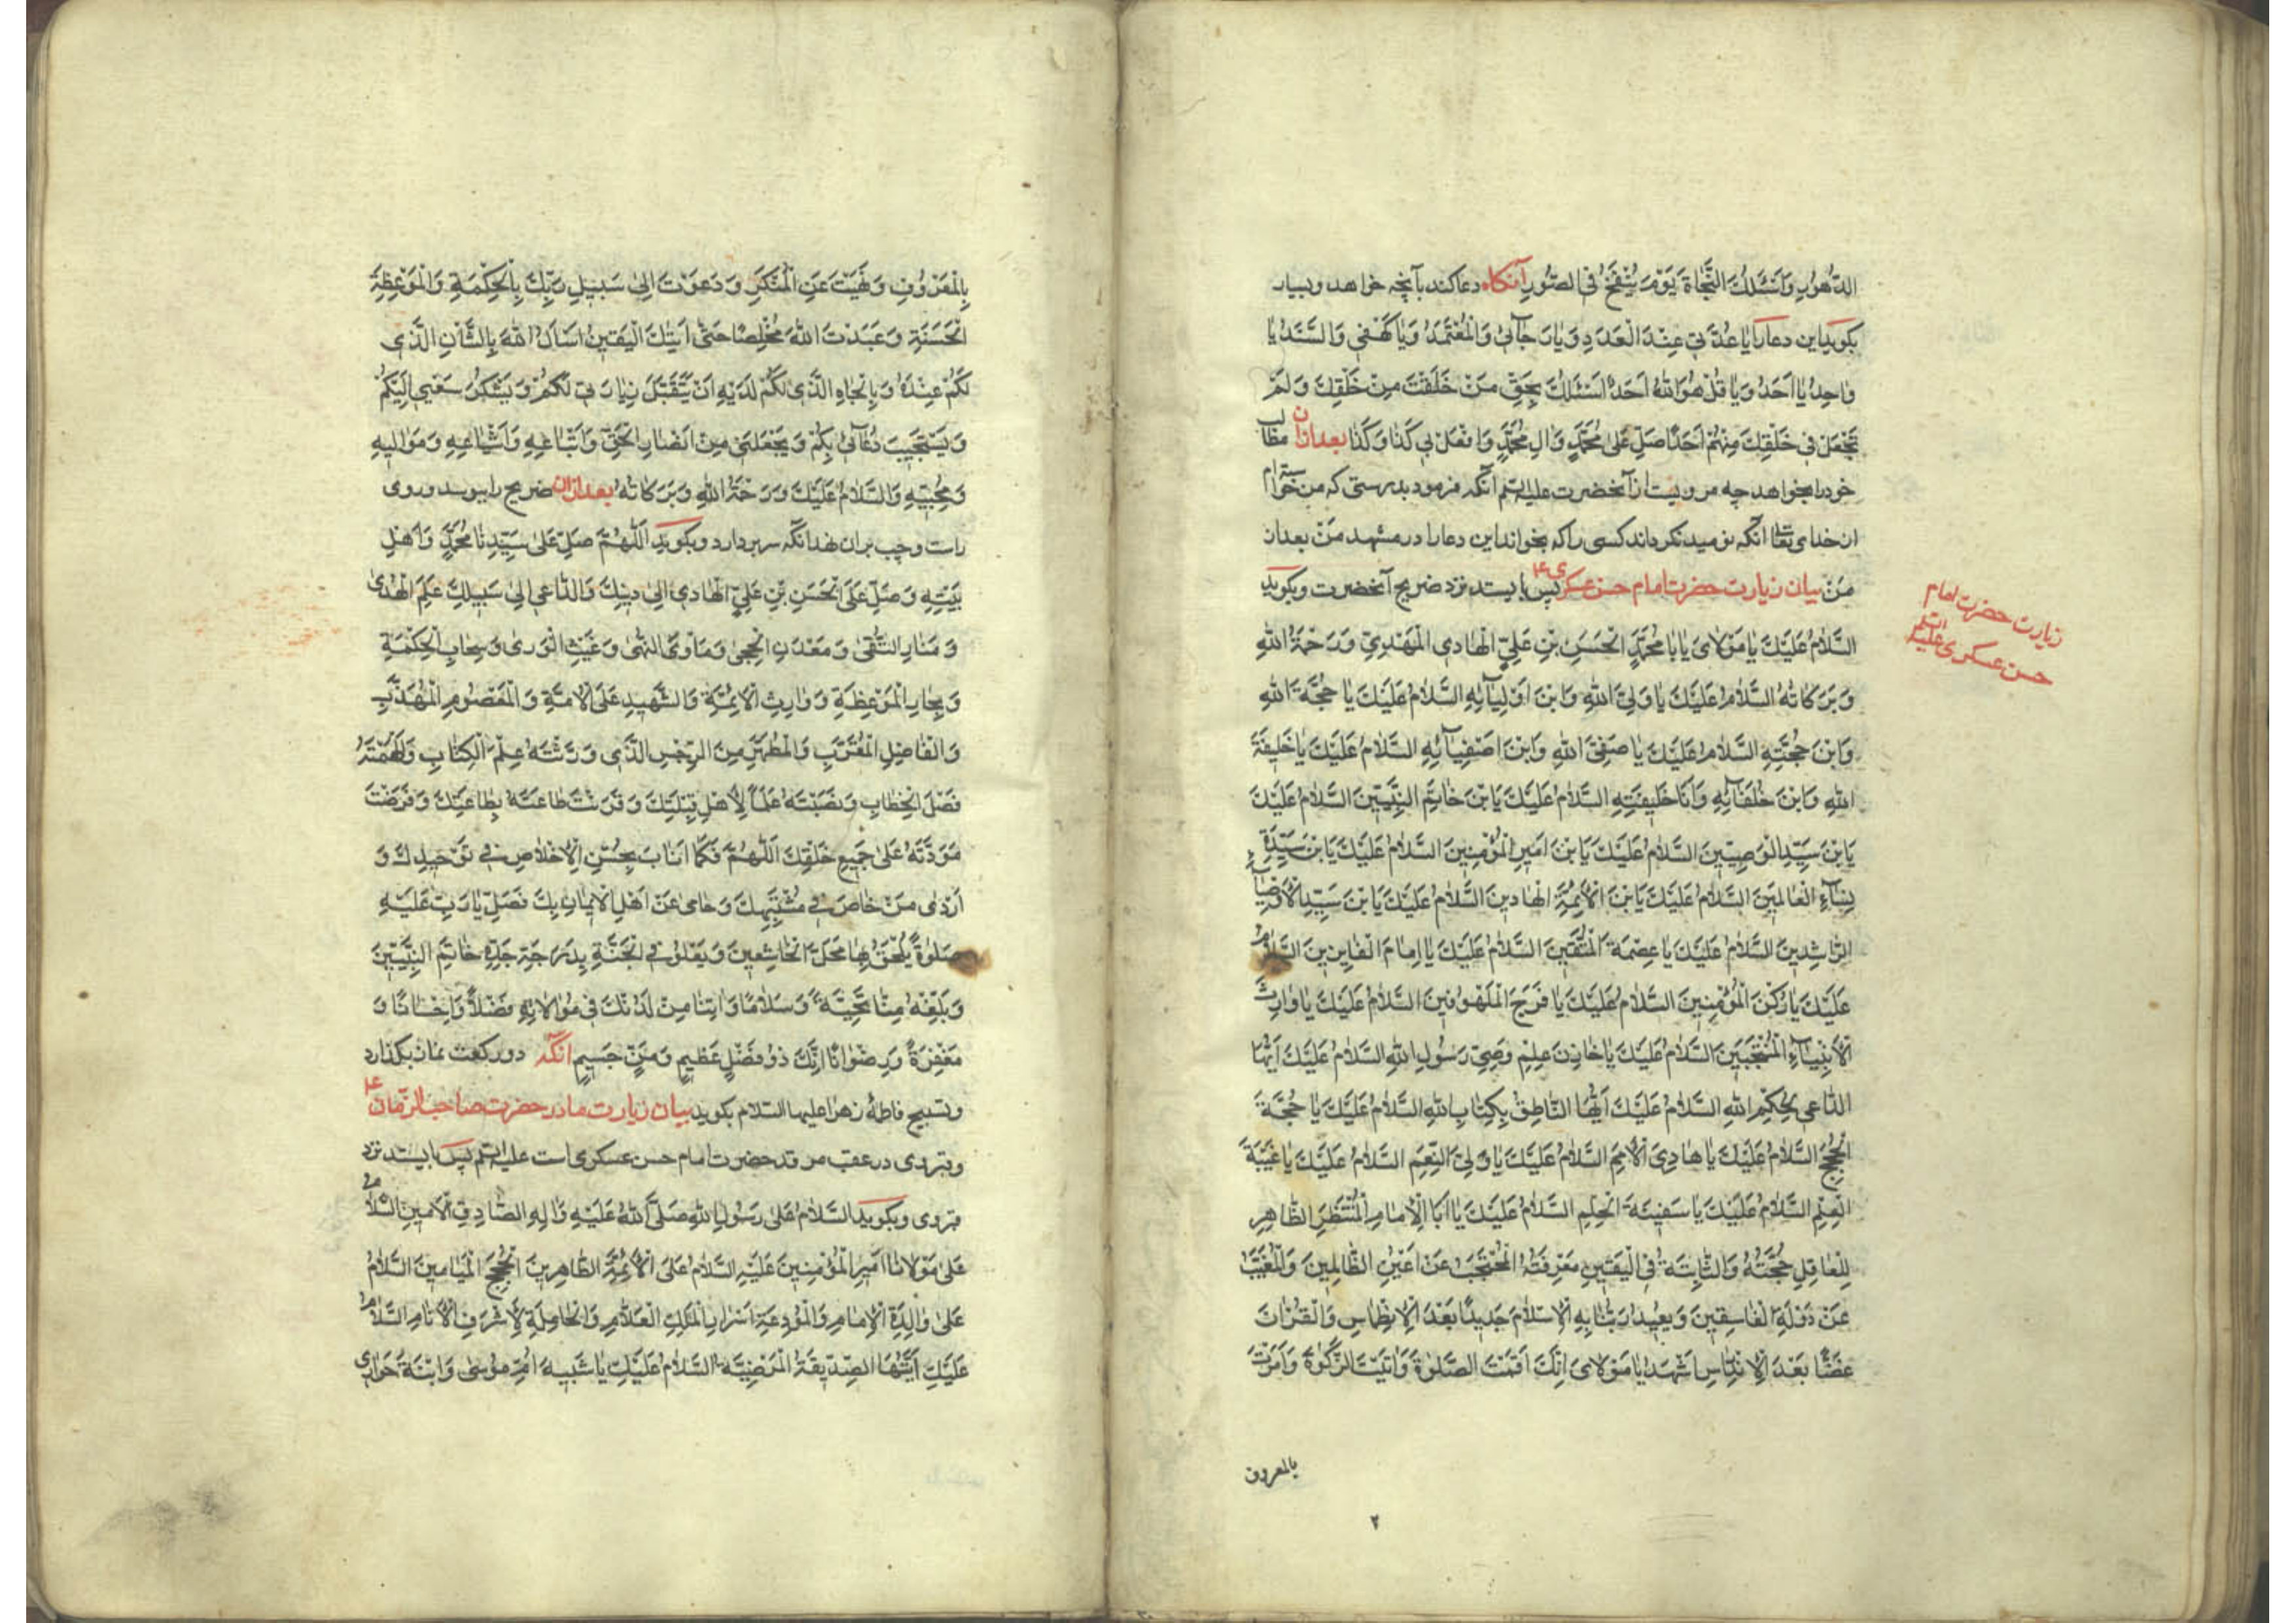 الدُّهُورِ وَاَسْئَلُكَ النَّجَاةَ يَوْمَ يُنْفَخُ فِى الصُّورِ آنكاه دعا كند بآنچه خواهد وبسيار
بكويد اين دعا را يا عُدَّتى عِنْدَ الْعَدَدِ وَيا رَجآئى وَالْمُعْتَمَدُ وَيا كَهْفى وَالسَّنَدُ يا
واحِدُ يا اَحَدُ وَيا قُلْ هُوَ اللّهُ اَحَدٌ اَسْئَلُكَ بِحَقِّ مَنْ خَلَقْتَ مِنْ خَلْقِكَ وَلَمْ
تَجْعَلْ فى خَلْقِكَ مِنْهُمْ اَحَدًا صَلِّ عَلى مُحَمَّدٍ وَالِ مُحَمَّدٍ وَافْعَلْ بى كَذا وَكَذا بعد ازان مطالب
خود را بخواهد چه مرويست از آنحضرت عليه السلم آنكه فرمود بدرستى كه من خواسته ام
از خداى تعالى آنكه نوميد نكرداند كسى را كه بخواند اين دعا را در مشهد من بعد از
من بيان زيارت حضرت امام حسن عسكرى ع پس بايستد نزد ضريح آنحضرت وبكويد
السَّلامُ عَلَيْكَ يا مَوْلاىَ يا اَبا مُحَمَّدٍ الْحَسَنِ بْنِ عَلِىٍّ الْهادِى الْمَهْدِىِّ وَرَحْمَةُ اللهِ
وَبَرَكاتُهُ السَّلامُ عَلَيْكَ يا وَلِىَّ اللهِ وَابْنَ اَوْلِيآئِهِ السَّلامُ عَلَيْكَ يا حُجَّةَ اللهِ
وَابْنَ حُجَّتِهِ السَّلامُ عَلَيْكَ يا صَفِىَّ اللهِ وَابْنَ اَصْفِيآئِهِ السَّلامُ عَلَيْكَ يا خَليفَةَ
اللهِ وَابْنَ خُلَفآئِهِ وَاَبا خَليفَتِهِ السَّلامُ عَلَيْكَ يَا بْنَ خاتَمِ النَّبِيّينَ السَّلامُ عَلَيْكَ
يَا بْنَ سَيِّدِ الْوَصِيّينَ السَّلامُ عَلَيْكَ يَا بْنَ اَميرِ الْمُؤْمِنينَ السَّلامُ عَلَيْكَ يَا بْنَ سَيِّدَةِ
نِسآءِ الْعالَمينَ السَّلامُ عَلَيْكَ يَا بْنَ الْاَئِمَّةِ الْهادينَ السَّلامُ عَلَيْكَ يَا بْنَ سَيِّدِ الْاَوْصِيآءِ
الرّاشِدينَ السَّلامُ عَلَيْكَ يا عِصْمَةَ الْمُتَّقينَ السَّلامُ عَلَيْكَ يا اِمامَ الْفآئِزينَ السَّلامُ
عَلَيْكَ يا رُكْنَ الْمُؤْمِنينَ السَّلامُ عَلَيْكَ يا فَرَجَ الْمَلْهُوفينَ السَّلامُ عَلَيْكَ يا وارِثَ
الْاَنْبِيآءِ الْمُنْتَجَبينَ السَّلامُ عَلَيْكَ يا خازِنَ عِلْمِ وَصِىِّ رَسُولِ اللهِ السَّلامُ عَلَيْكَ اَيُّهَا
الدّاعى بِحُكْمِ اللهِ السَّلامُ عَلَيْكَ اَيُّهَا النّاطِقُ بِكِتابِ اللهِ السَّلامُ عَلَيْكَ يا حُجَّةَ
الْحُجَجِ السَّلامُ عَلَيْكَ يا هادِىَ الْاُمَمِ السَّلامُ عَلَيْكَ يا وَلِىَّ النِّعَمِ السَّلامُ عَلَيْكَ يا عَيْبَةَ
الْعِلْمِ السَّلامُ عَلَيْكَ يا سَفينَةَ الْحِلْمِ السَّلامُ عَلَيْكَ يا اَبَا الْاِمامِ الْمُنْتَظَرِ الظّاهِرِ
لِلْعاقِلِ حُجَّتُهُ وَالثّابِتَةِ فِى الْيَقينِ مَعْرِفَتُهُ الْمُحْتَجَبِ عَنْ اَعْيُنِ الظّالِمينَ وَالْمُغَيَّبِ
عَنْ دَوْلَةِ الْفاسِقينَ وَيُعيدُ رَبُّنا بِهِ الْاِسْلامَ جَديدًا بَعْدَ الْاِنْطِماسِ وَالْقُرْآنَ
غَضًّا بَعْدَ الْاِنْدِراسِ اَشْهَدُ يا مَوْلاىَ اِنَّكَ اَقَمْتَ الصَّلوةَ وَاتَيْتَ الزَّكوةَ وَاَمَرْتَ
بالمعروف
٢
زيارت حضرت امام
حسن عسكرى عليه السلم
بِالْمَعْرُوفِ وَنَهَيْتَ عَنِ الْمُنْكَرِ وَدَعَوْتَ اِلى سَبيلِ رَبِّكَ بِالْحِكْمَةِ وَالْمَوْعِظَةِ
الْحَسَنَةِ وَعَبَدْتَ اللهَ مُخْلِصًا حَتّى اَتيكَ الْيَقينُ اَسْاَلُ اللهَ بِالشَّاْنِ الَّذى
لَكُمْ عِنْدَهُ وَبِالْجاهِ الَّذى لَكُمْ لَدَيْهِ اَنْ يَتَقَبَّلَ زِيارَتى لَكُمْ وَيَشْكُرَ سَعْيى اِلَيْكُمْ
وَيَسْتَجيبَ دُعآئى بِكُمْ وَيَجْعَلَنى مِنْ اَنْصارِ الْحَقِّ وَاَتْباعِهِ وَاَشْياعِهِ وَمَواليهِ
وَمُحِبّيهِ وَالسَّلامُ عَلَيْكَ وَرَحْمَةُ اللهِ وَبَرَكاتُهُ بعد ازان ضريح را ببوسد وروى
راست وچپ بران نهد انكه سر بردارد وبكويد اَللّهُمَّ صَلِّ عَلى سَيِّدِنا مُحَمَّدٍ وَاَهْلِ
بَيْتِهِ وَصَلِّ عَلَى الْحَسَنِ بْنِ عَلِىٍّ الْهادى اِلى دينِكَ وَالدّاعى اِلى سَبيلِكَ عَلَمِ الْهُدى
وَمَنارِ التُّقى وَمَعْدَنِ الْحِجى وَمَاْوَى النُّهى وَغَيْثِ الْوَرى وَسَحابِ الْحِكْمَةِ
وَبِحارِ الْمَوْعِظَةِ وَوارِثِ الْاَئِمَّةِ وَالشَّهيدِ عَلَى الْاُمَّةِ وَالْمَعْصُومِ الْمُهَذَّبِ
وَالْفاضِلِ الْمُقَرَّبِ وَالْمُطَهَّرِ مِنَ الرِّجْسِ الَّذى وَرَّثْتَهُ عِلْمَ الْكِتابِ وَاَلْهَمْتَهُ
فَصْلَ الْخِطابِ وَنَصَبْتَهُ عَلَمًا لِاَهْلِ قِبْلَتِكَ وَقَرَنْتَ طاعَتَهُ بِطاعَتِكَ وَفَرَضْتَ
مَوَدَّتَهُ عَلى جَميعِ خَلْقِكَ اَللّهُمَّ فَكَما اَنابَ بِحُسْنِ الْاِخْلاصِ فى تَوْحيدِكَ وَ
اَرْدى مَنْ خاضَ فى تَشْبيهِكَ وَحامى عَنْ اَهْلِ الْايمانِ بِكَ فَصَلِّ يا رَبِّ عَلَيْهِ
صَلوةً يَلْحَقُ بِها مَحَلَّ الْخاشِعينَ وَيَعْلُو فِى الْجَنَّةِ بِدَرَجَةِ جَدِّهِ خاتَمِ النَّبِيّينَ
وَبَلِّغْهُ مِنّا تَحِيَّةً وَسَلامًا وَاتِنا مِنْ لَدُنْكَ فى مُوالاتِهِ فَضْلاً وَاِحْسانًا وَ
مَغْفِرَةً وَرِضْوانًا اِنَّكَ ذُو فَضْلٍ عَظيمٍ وَمَنٍّ جَسيمٍ انكه دو ركعت نماز بكذارد
وتسبيح فاطمهٔ زهرا عليها السلام بكويد بيان زيارت مادر حضرت صاحب الزمان ع
وقبر وى در عقب مرقد حضرت امام حسن عسكرى است عليه السلم پس بايستد نزد
قبر وى وبكويد السَّلامُ عَلى رَسُولِ اللهِ صَلَّى اللهُ عَلَيْهِ وَالِهِ الصّادِقِ الْاَمينِ السَّلامُ
عَلى مَوْلانا اَميرِ الْمُؤْمِنينَ عَلَيْهِ السَّلامُ عَلَى الْاَئِمَّةِ الطّاهِرينَ الْحُجَجِ الْمَيامينَ السَّلامُ
عَلى والِدَةِ الْاِمامِ وَالْمُودَعَةِ اَسْرارَ الْمَلِكِ الْعَلّامِ وَالْحامِلَةِ لِاَشْرَفِ الْاَنامِ السَّلامُ
عَلَيْكِ اَيَّتُهَا الصِّدّيقَةُ الْمَرْضِيَّةُ السَّلامُ عَلَيْكِ يا شَبيهَةَ اُمِّ مُوسى وَابْنَةَ حَوارِى